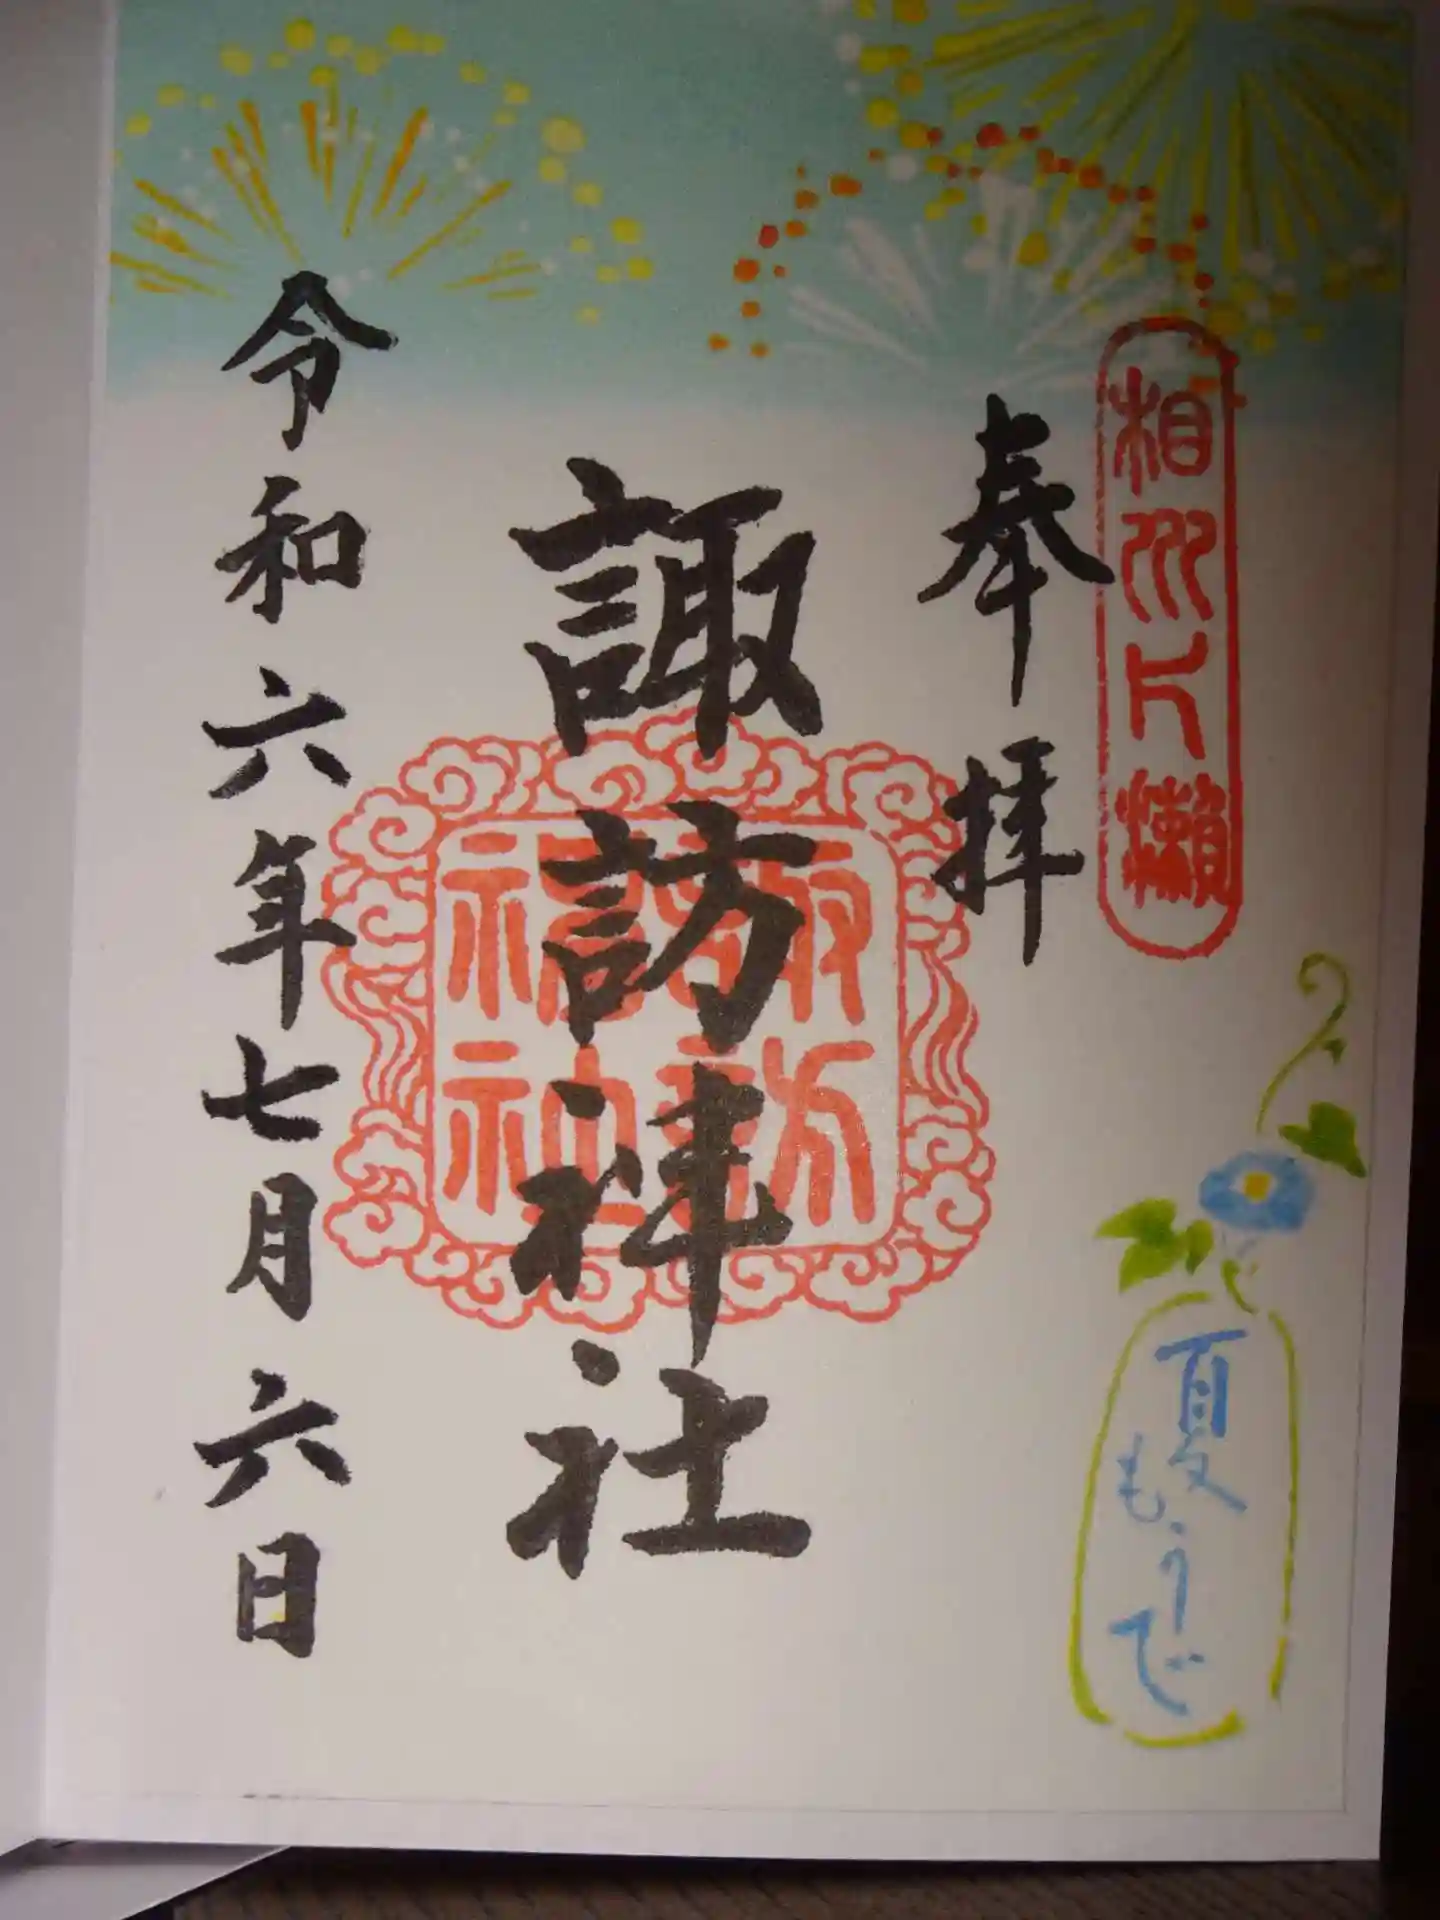 相州片瀨
奉拝
夏もうで
諏訪神社
諏訪
神社
令和六年七月六日